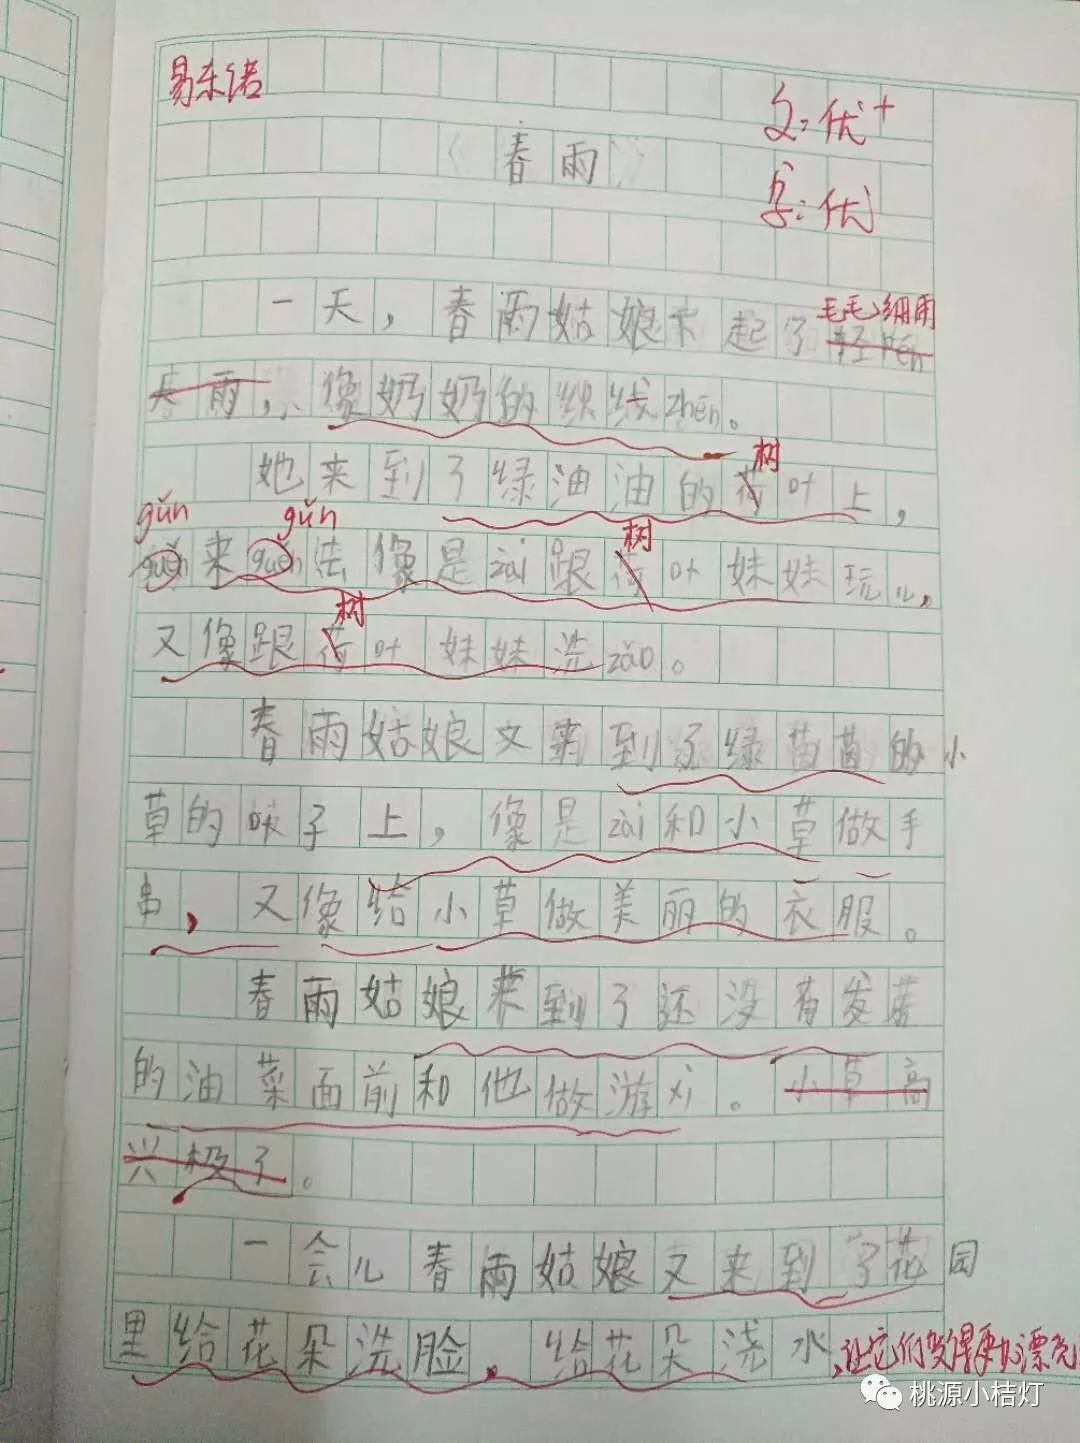 易东诺
文:优+
《春雨》
字:优
毛毛细雨
一天,春雨姑娘来起了轻pén
大雨,像奶奶的织线zhēn。
树
她来到了绿油油的荷叶上,
gǔn gǔn
树
guěn来guěn去像是zài跟荷叶妹妹玩儿,
树
又像跟荷叶妹妹洗zǎo。
春雨姑娘又来到了绿茵茵的小
草的脖子上,像是zài和小草做手
串,又像给小草做美丽的衣服。
春雨姑娘来到了还没有发芽
的油菜面前和他做游xì。小草高
兴极了。
一会儿春雨姑娘又来到了花园
里给花朵洗脸,给花朵浇水,让它们变得更加漂亮
桃源小桔灯